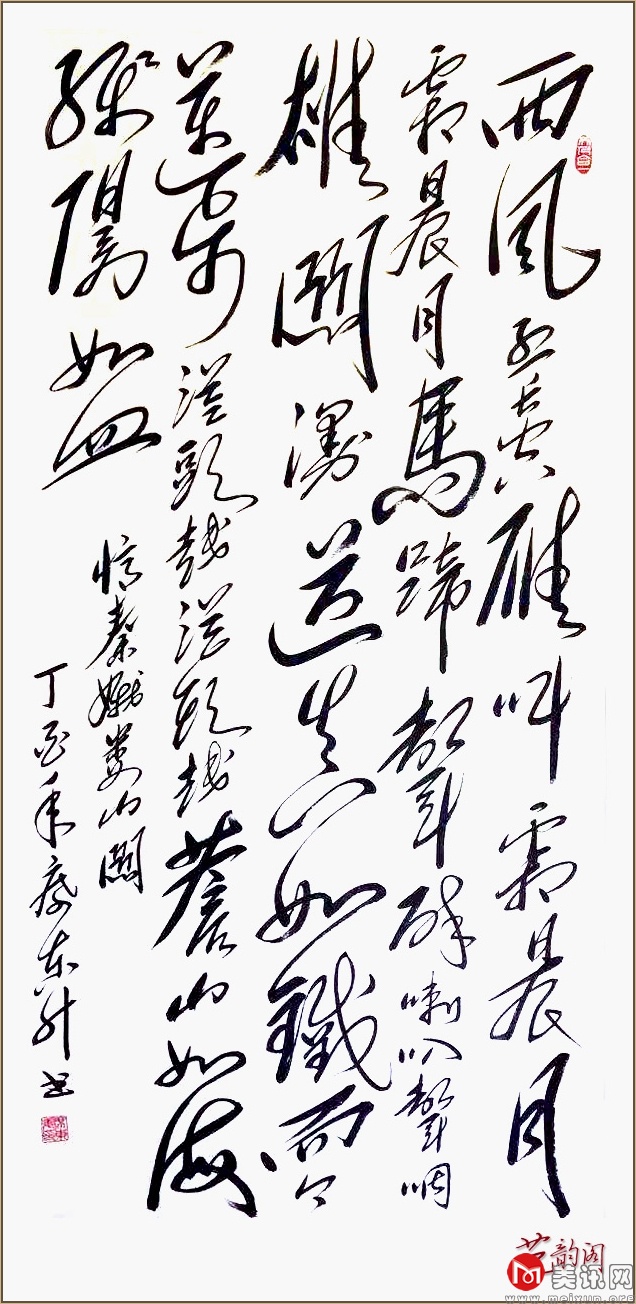 西風烈長空雁叫霜晨月
霜晨月馬蹄聲碎喇叭聲咽
雄關漫道真如鐵而今
邁步從頭越從頭越蒼山如海
殘陽如血
憶秦娥婁山關
丁酉年廖东升书
艺韵阁
美讯网
www.meixun.org